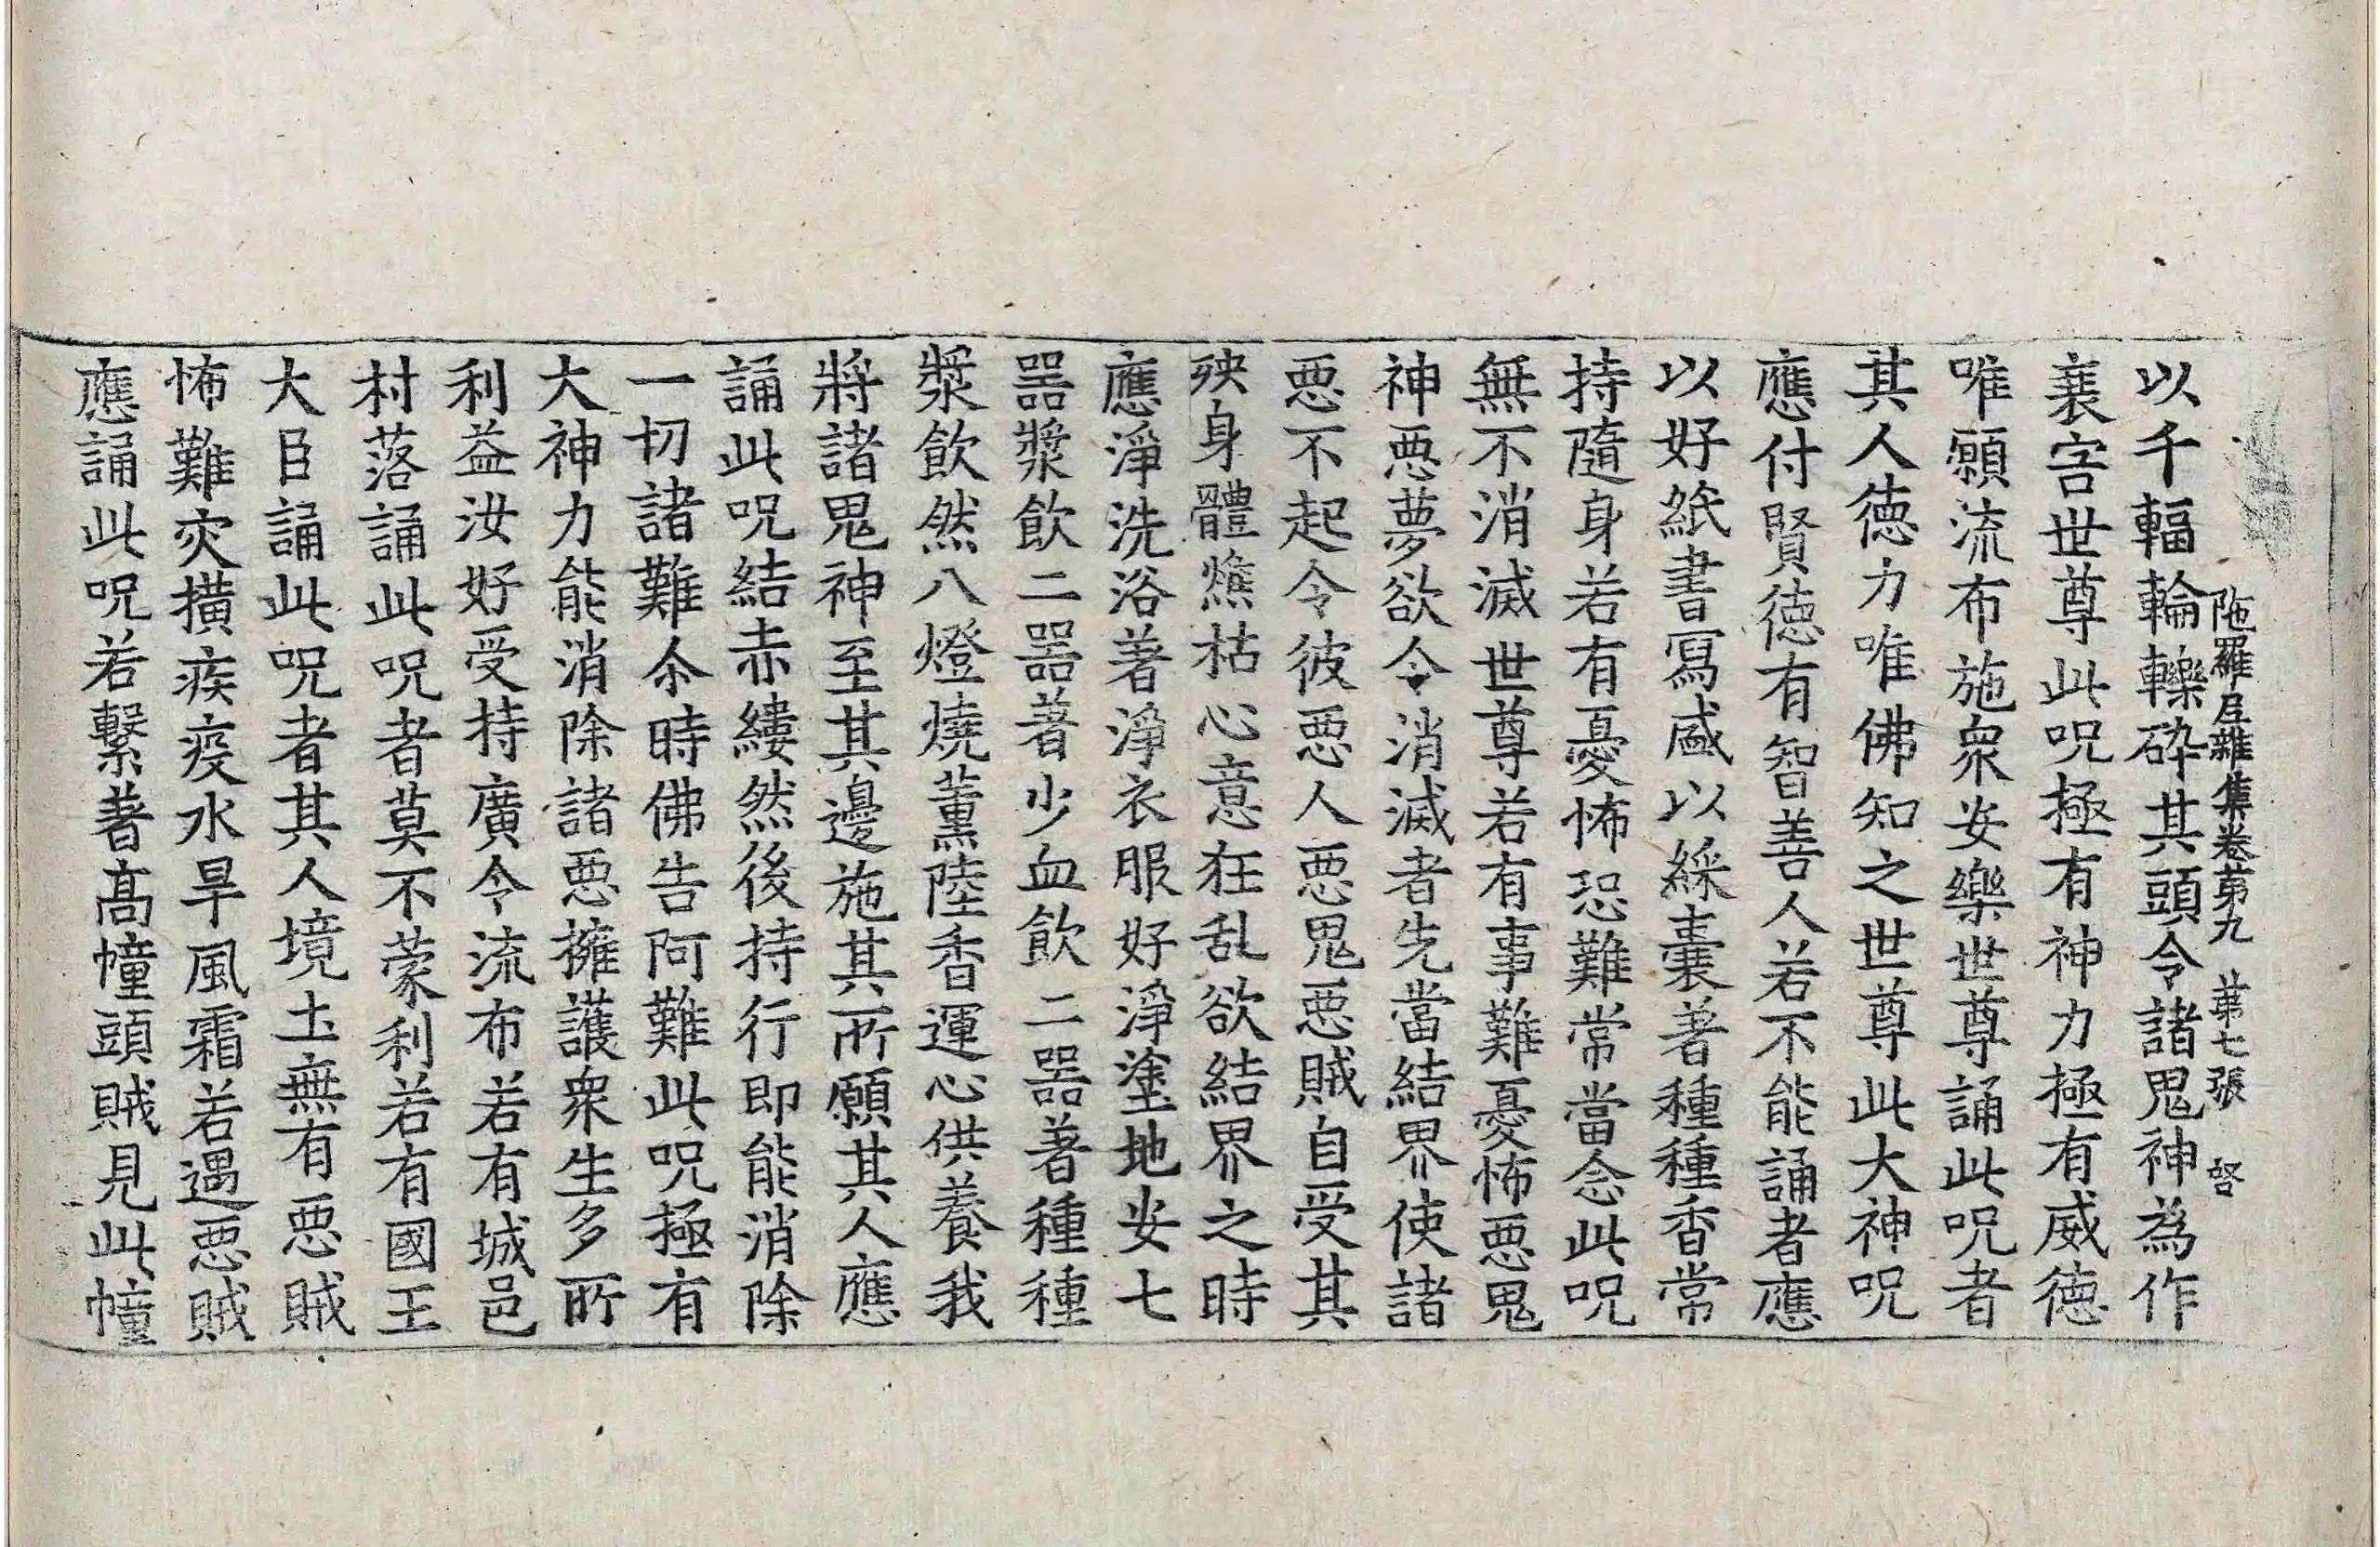 陁羅尼雜集卷第九 第七張 㗳
以千輻輪轢碎其頭令諸鬼神為作
衰害世尊此呪極有神力極有威德
唯願流布施衆安樂世尊誦此呪者
其人德力唯佛知之世尊此大神呪
應付賢德有智善人若不能誦者應
以好紙書寫盛以綵囊著種種香常
持隨身若有憂怖恐難常當念此呪
無不消滅世尊若有事難憂怖惡鬼
神惡夢欲令消滅者先當結界使諸
惡不起令彼惡人惡鬼惡賊自受其
殃身體燋枯心意狂乱欲結界之時
應淨洗浴著淨衣服好淨塗地安七
器漿飲二器著少血飲二器著種種
漿飲然八燈燒薰陸香運心供養我
將諸鬼神至其邊施其所願其人應
誦此呪結赤縷然後持行即能消除
一切諸難尒時佛告阿難此呪極有
大神力能消除諸惡擁護衆生多所
利益汝好受持廣令流布若有城邑
村落誦此呪者莫不蒙利若有國王
大臣誦此呪者其人境土無有惡賊
怖難灾撗疾疫水旱風霜若遇惡賊
應誦此呪若繫著高幢頭賊見此幢